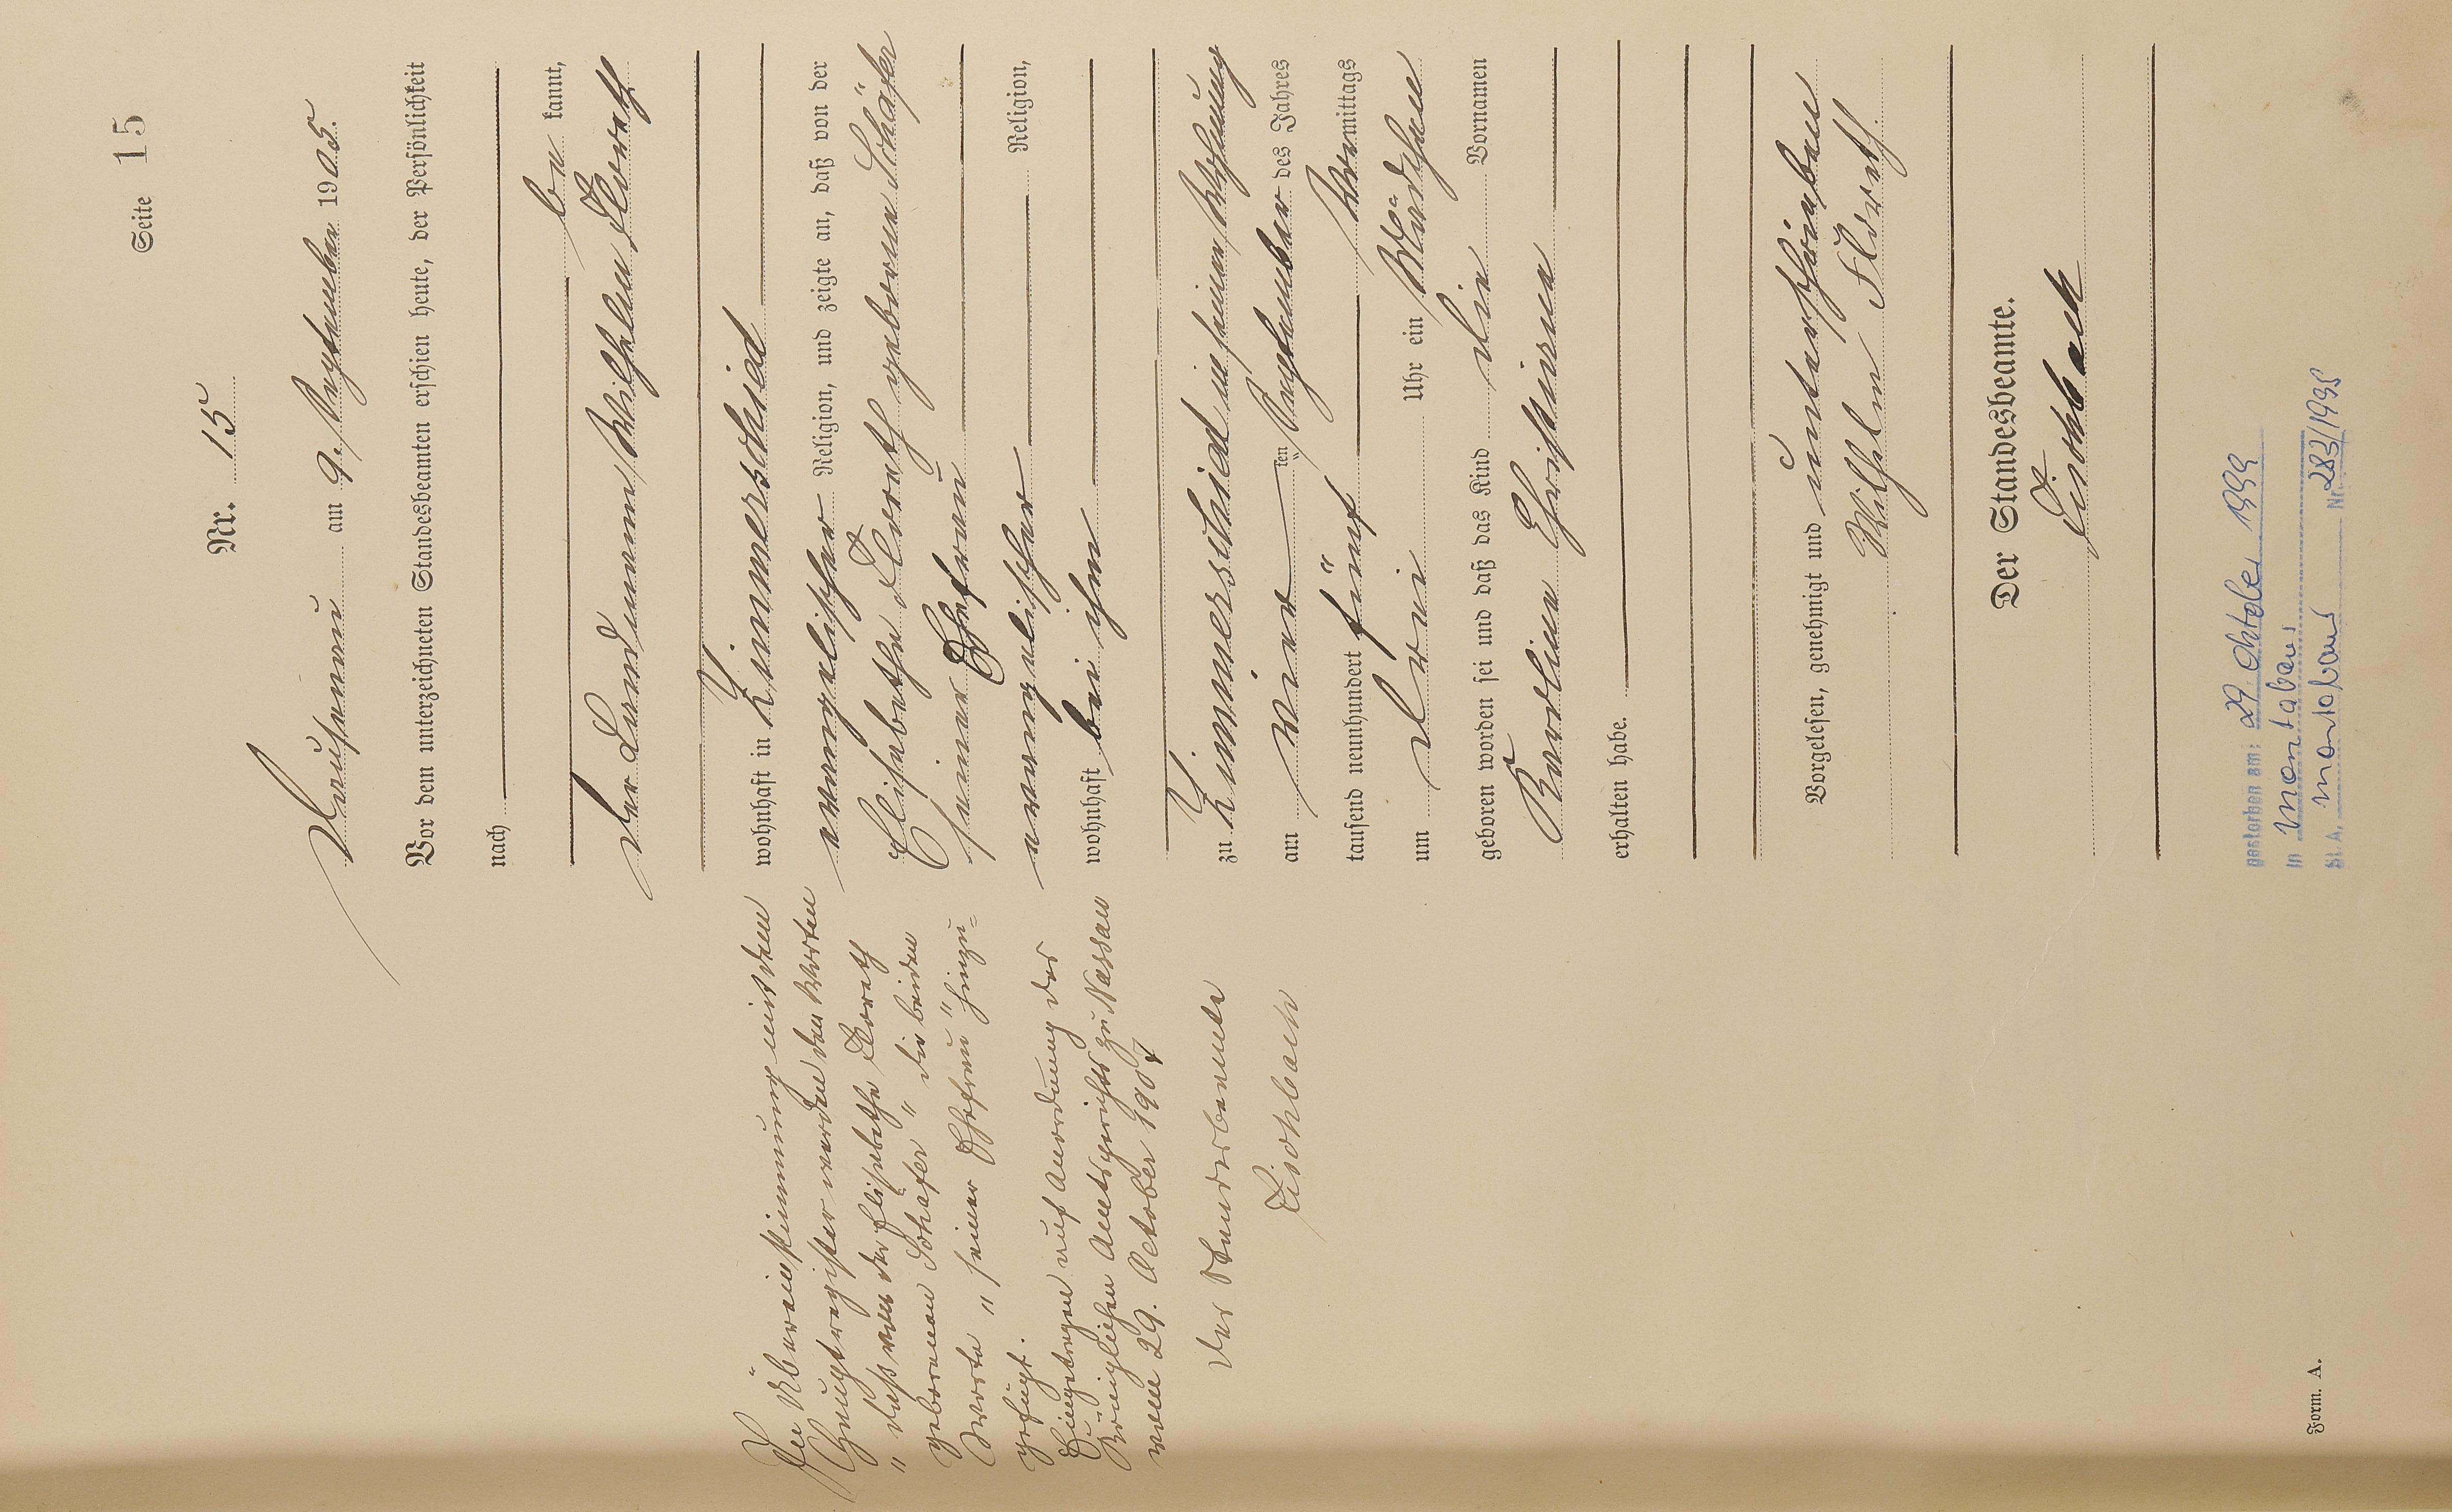 Seite 15
Nr. 15
Dausenau am 9. September 1905.
Vor dem unterzeichneten Standesbeamten erschien heute, der Persönlichkeit
nach
be kannt,
der Landmann Wilhelm Floreth
wohnhaft in Zimmerschied
evangelischer Religion, und zeigte an, daß von der
Elisabethe Floreth geborenen Schäfer
seiner Ehefrau
evangelischer Religion,
wohnhaft bei ihm
zu Zimmerschied in seiner Wohnung
am vier ten September des Jahres
tausend neunhundert fünf Vormittags
um drei Uhr ein Mädchen
geboren worden sei und daß das Kind die Vornamen
Karoline Christiane
erhalten habe.
Vorgelesen, genehmigt und unterschrieben
Wilhelm Floreth.
Der Standesbeamte.
Fischbach
In Übereinstimmung mit dem
Hauptregister werden den Worten
"daß von der Elisabethe Floreth
geborenen Schäfer" die beiden
Worte "seiner Ehefrau" hinzu=
gefügt.
Eingetragen auf Anordnung des
Königlichen Amtsgerichts zu Nassau
vom 29. October 1907
Der Standesbeamte
Fischbach
gestorben am: 29. Oktober 1995
in Montabaur
St. A. Montabaur Nr. 283/1995
Form. A.